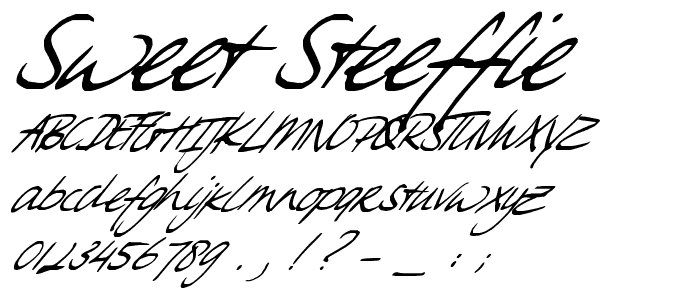 Sweet Steeffie
ABCDEFGHIJKLMNOPQRSTUVWXYZ
abcdefghijklmnopqrstuvwxyz
0123456789 . , ! ? - _ : ;